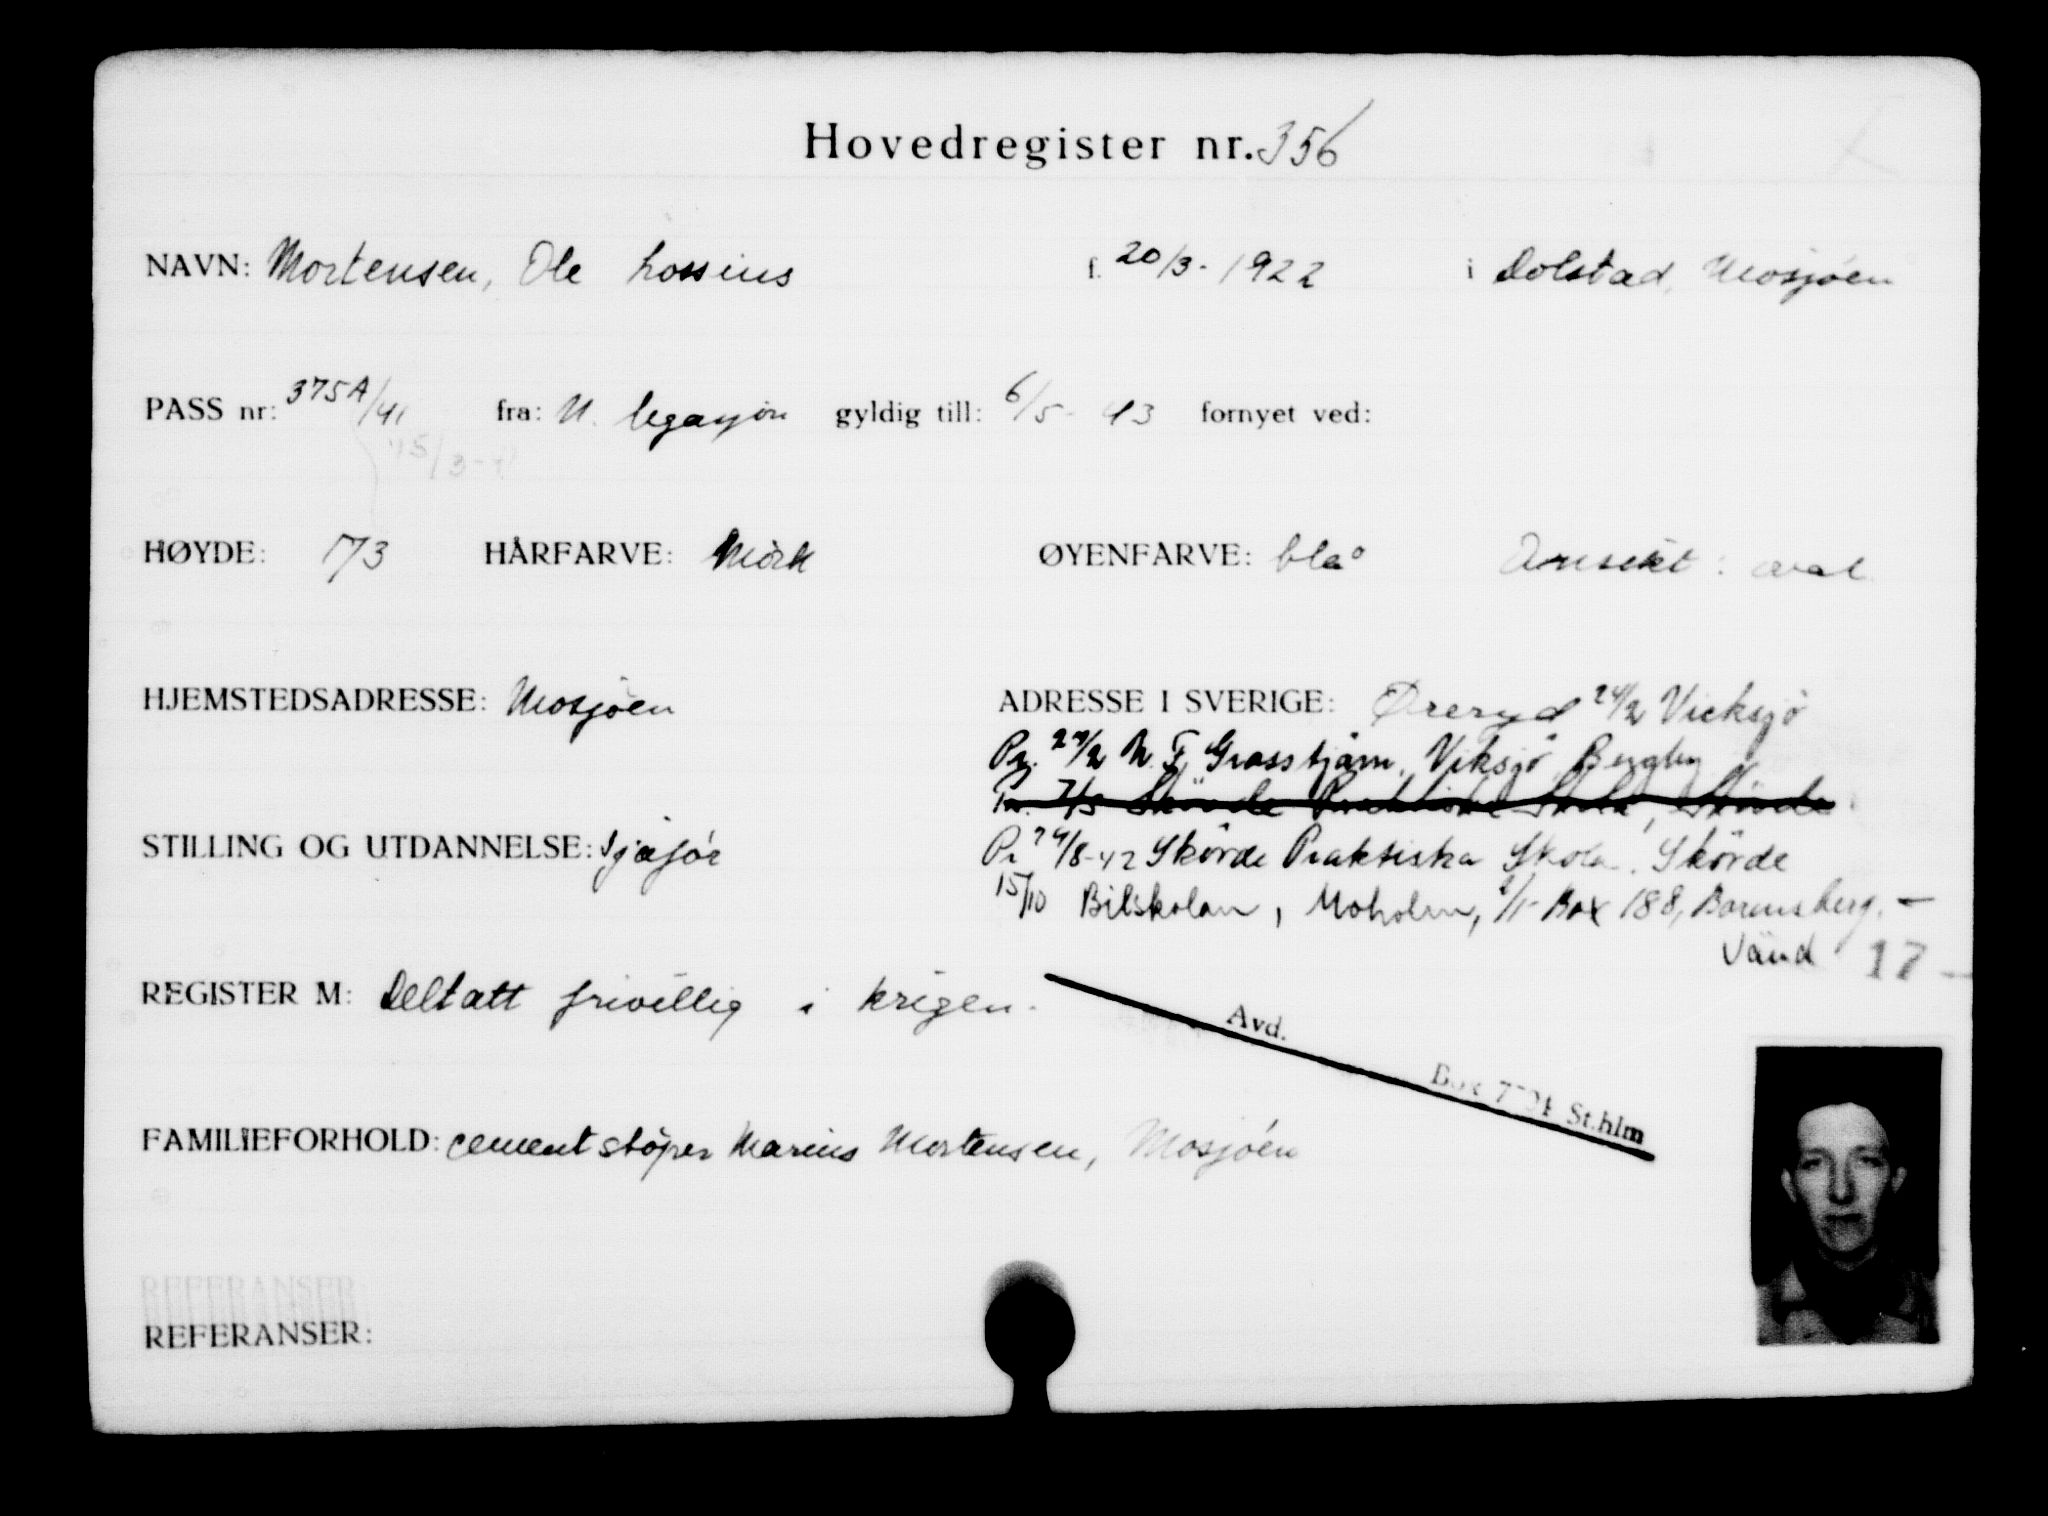 Hovedregister nr. 356
NAVN: Mortensen, Ole Lossius f. 20/3-1922 i Dolstad, Mosjøen
PASS nr: 375A/41 fra: N. legasjon gyldig till: 6/5-43 fornyet ved:
15/3-
HØYDE: 173 HÅRFARVE: Mörk ØYENFARVE: blå Ansikt: oval
HJEMSTEDSADRESSE: Mosjøen ADRESSE I SVERIGE: Øreryd 24/2 Vieksjö
Pr. 27/2 N. F. Grasstjärn, Viksjö, Bergby
Pr. 7/5 Skövde Praktiska Skola, Skövde
STILLING OG UTDANNELSE: Sjåfør Pr 24/8-42 Skövde Praktiska Skola, Skövde
15/10 Bilskolan, Moholm, 1/1- Box 188, Borensberg. -
Vänd 17 -
REGISTER M: Deltatt frivillig i krigen.
Avd.
Box St.hlm
FAMILIEFORHOLD: cementstøper Marius Mortensen, Mosjøen
REFERANSER
REFERANSER: